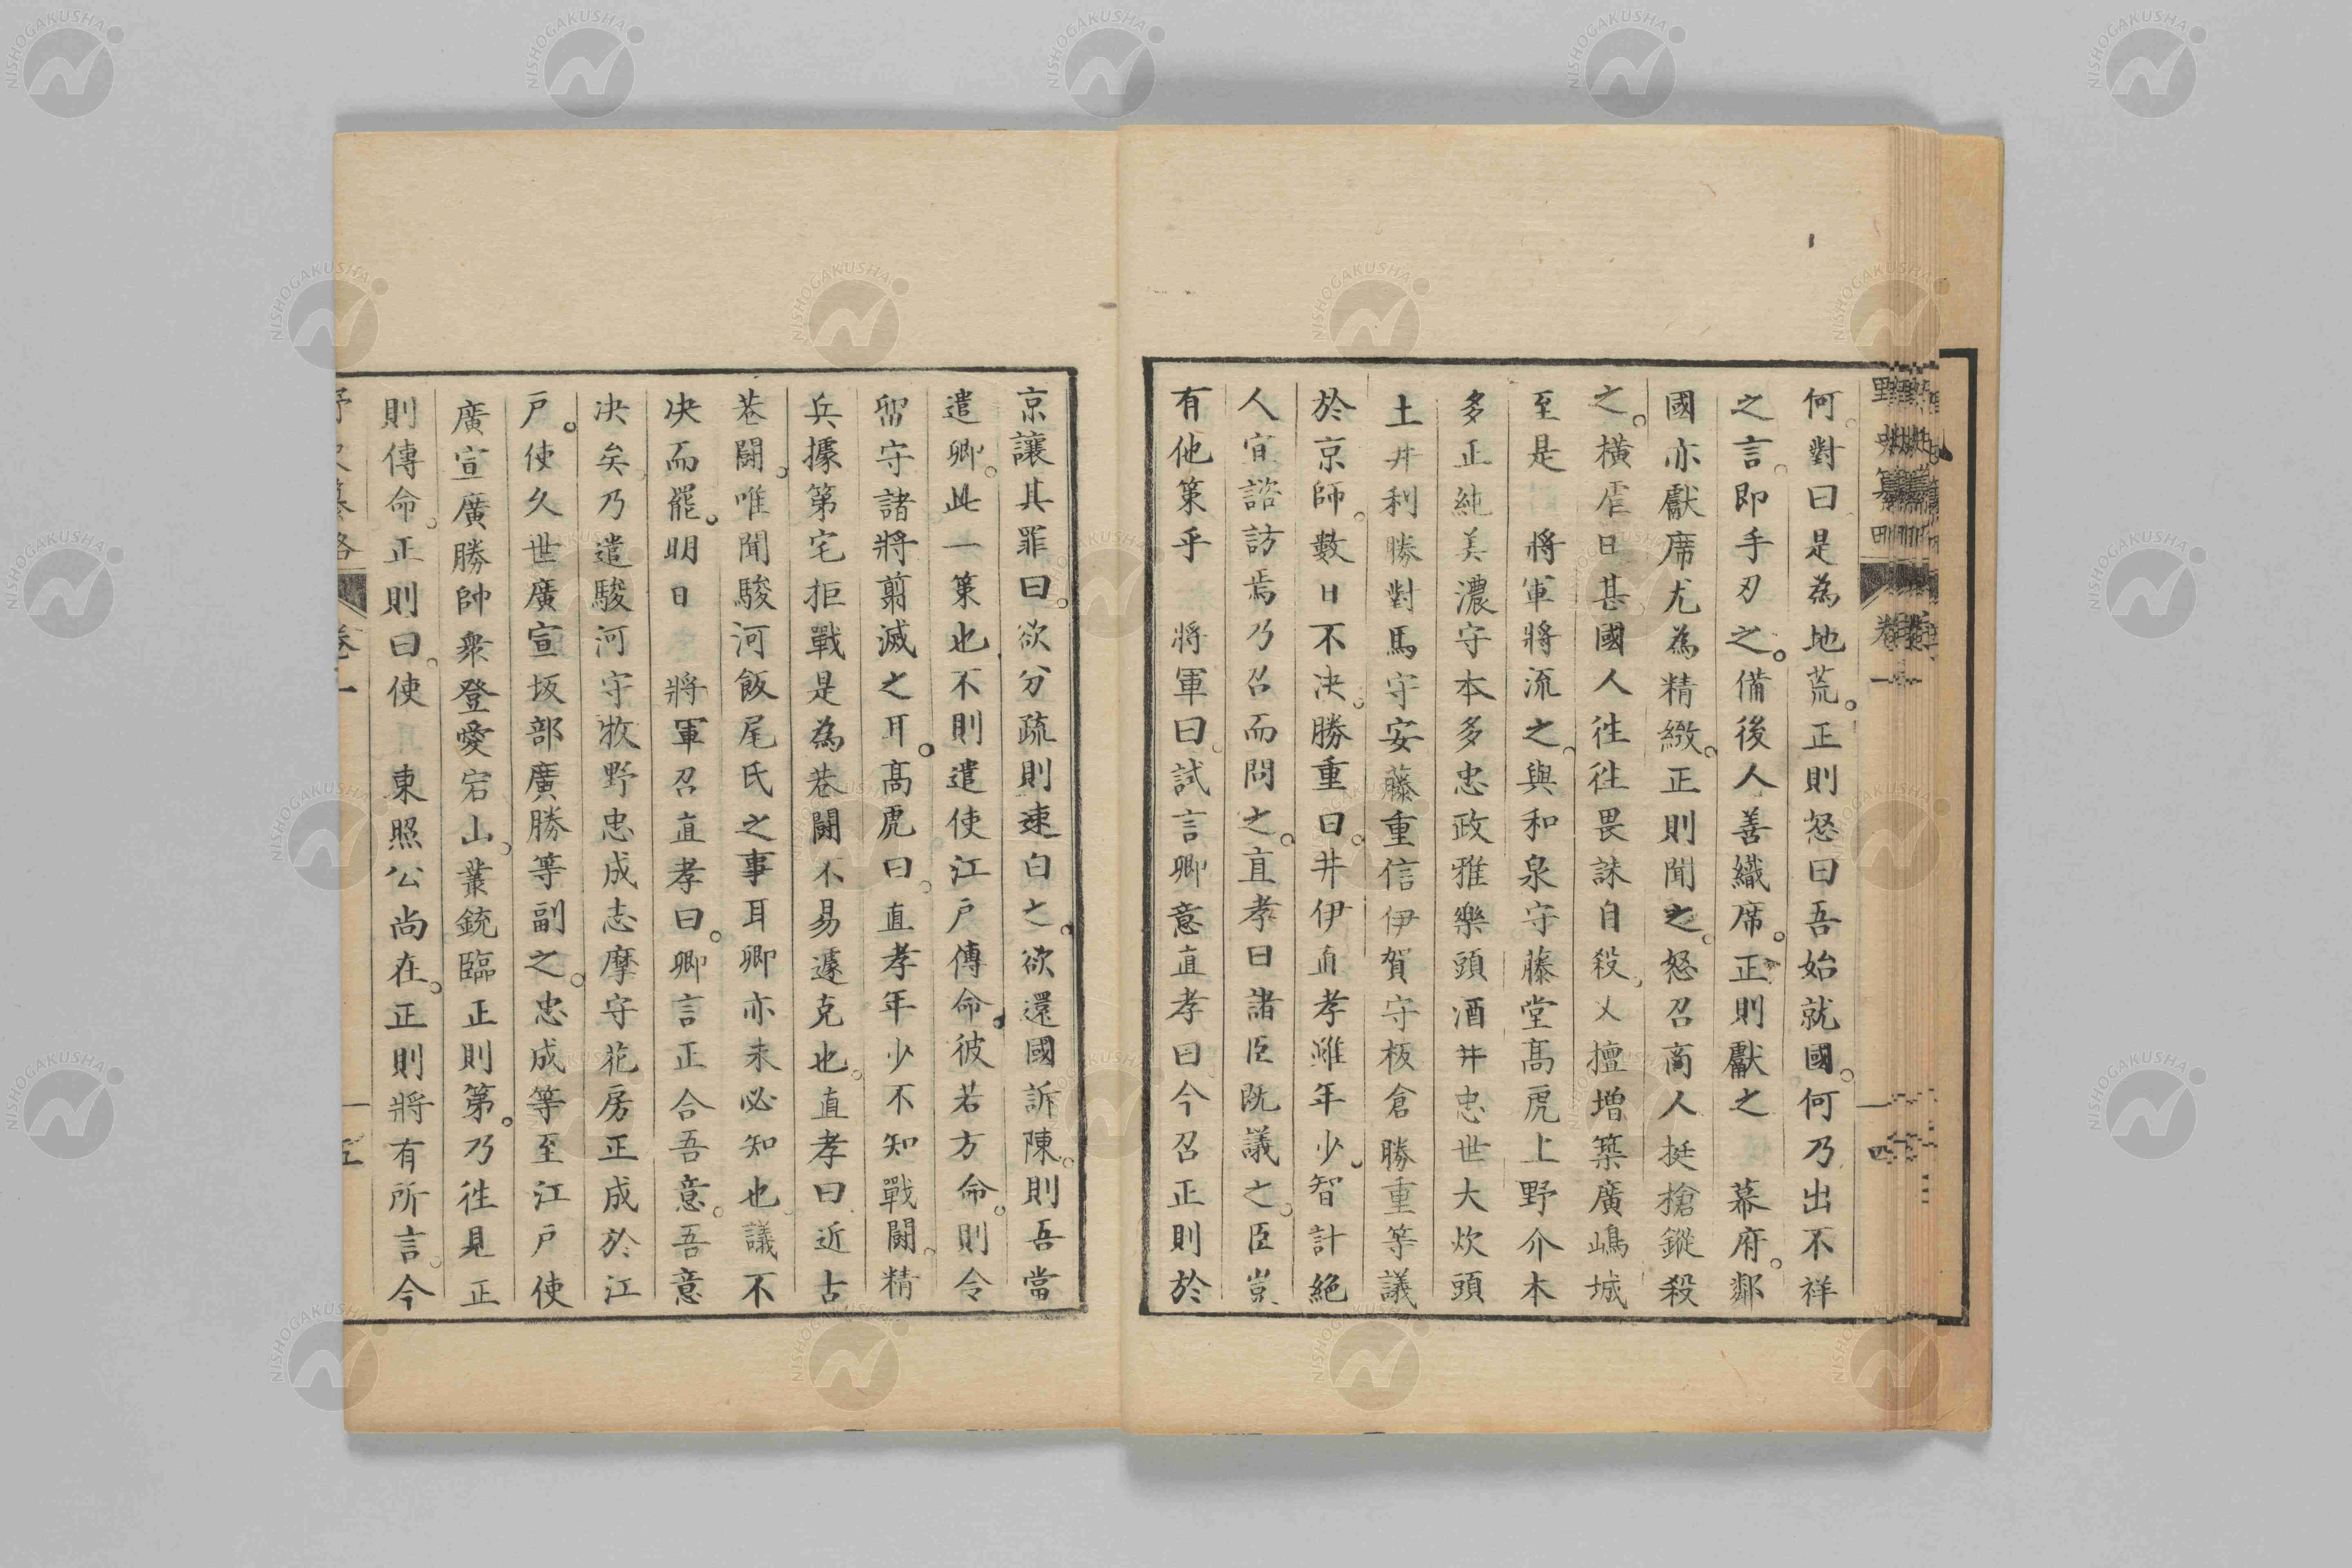 何對曰是為地荒。正則怒曰吾始就國。何乃出不祥
之言。即手刃之。備後人善織席。正則獻之　幕府。鄰
國亦獻席尤為精緻。正則聞之。怒召商人挺槍鏦殺
之。橫虐日甚。國人往往畏誅自殺。乂擅增築廣嶋城
至是　將軍將流之。與和泉守藤堂高虎上野介本
多正純美濃守本多忠政雅樂頭酒井忠世大炊頭
土井利勝對馬守安藤重信伊賀守板倉勝重等議
於京師。數日不決。勝重曰。井伊直孝雖年少。智計絕
人宜諮訪焉乃召而問之。直孝曰諸臣既議之。臣豈
有他策乎　將軍曰。試言卿意直孝曰。今召正則於
京讓其罪曰。欲分疏則速白之。欲還國訴陳。則吾當
遣卿。此一策也。不則遣使江戶傳命。彼若方命。則令
留守諸將翦滅之耳。高虎曰。直孝年少不知戰鬪。精
兵據第宅拒戰是為巷鬪不易遽克也。直孝曰近古
巷鬪。唯聞駿河飯尾氏之事耳卿亦未必知也。議不
決而罷。明日　將軍召直孝曰。卿言正合吾意。吾意
決矣。乃遣駿河守牧野忠成志摩守花房正成於江
戶。使久世廣宣坂部廣勝等副之。忠成等至江戶使
廣宣廣勝帥衆登愛宕山。叢銃臨正則第。乃往見正
則傳命。正則曰。使　東照公尚在。正則將有所言。今
卷一